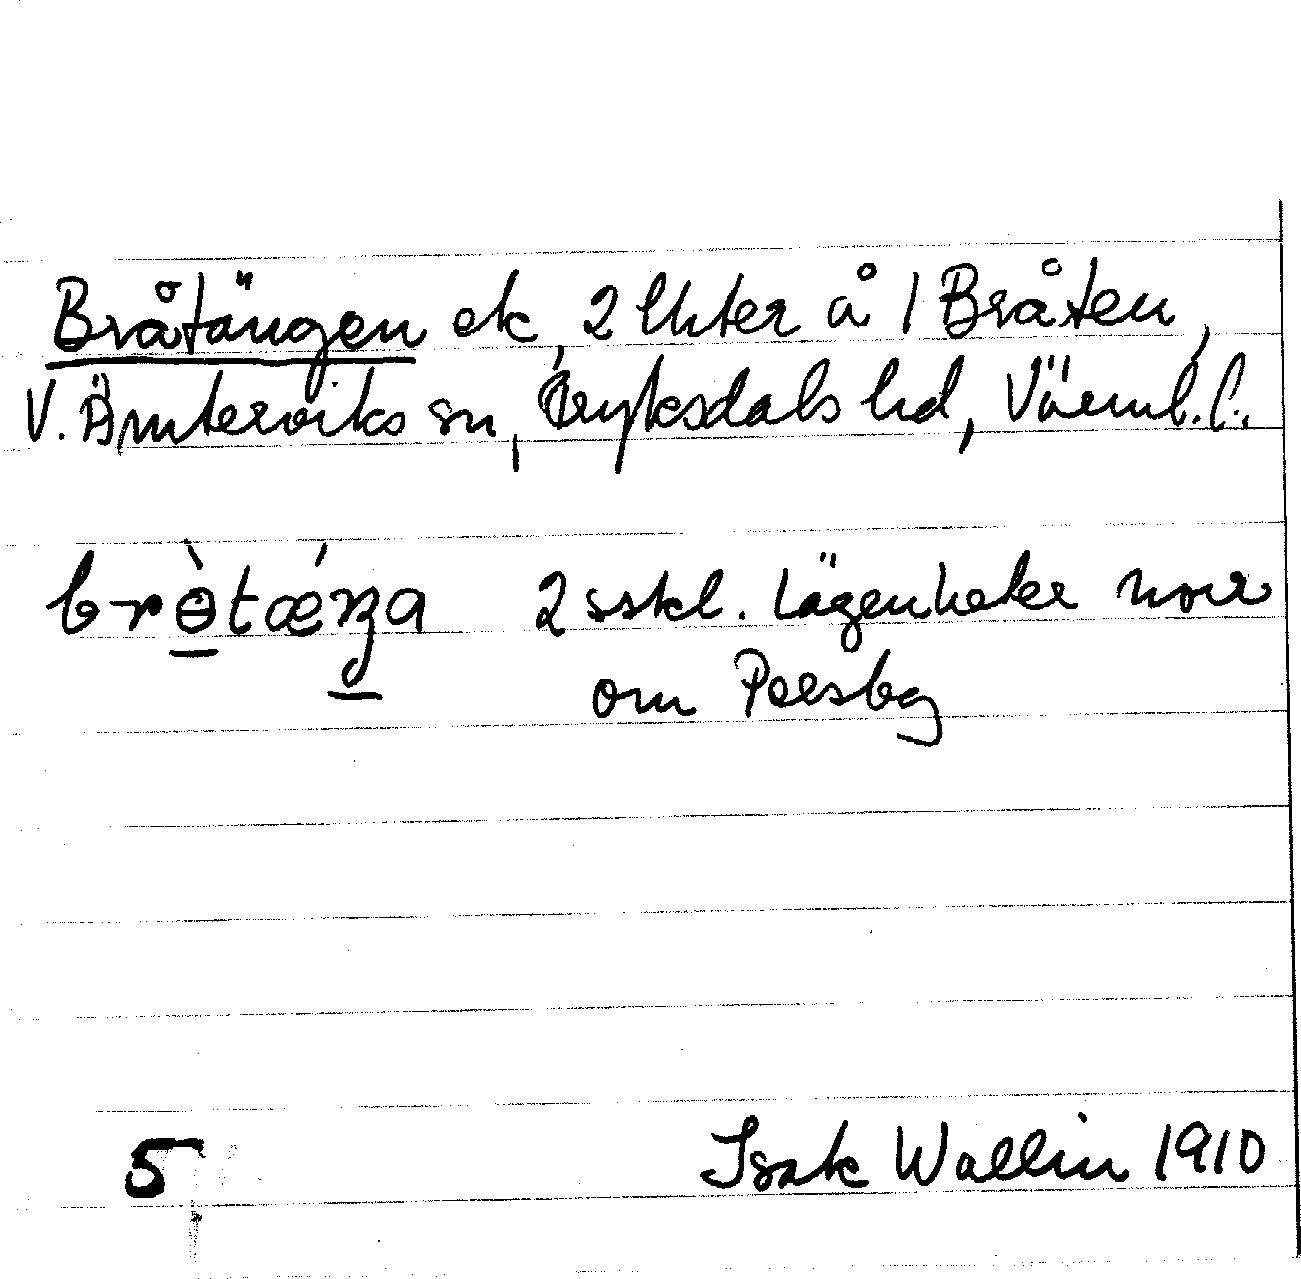 Bråtängen ek, 2 lhter å 1 Bråten,
V. Ämterviks sn, Fryksdals hd, Värml. l.
brɵ̀tǽŋa 2 sskl. lägenheter norr
om Persbg
5 Isak Wallin 1910